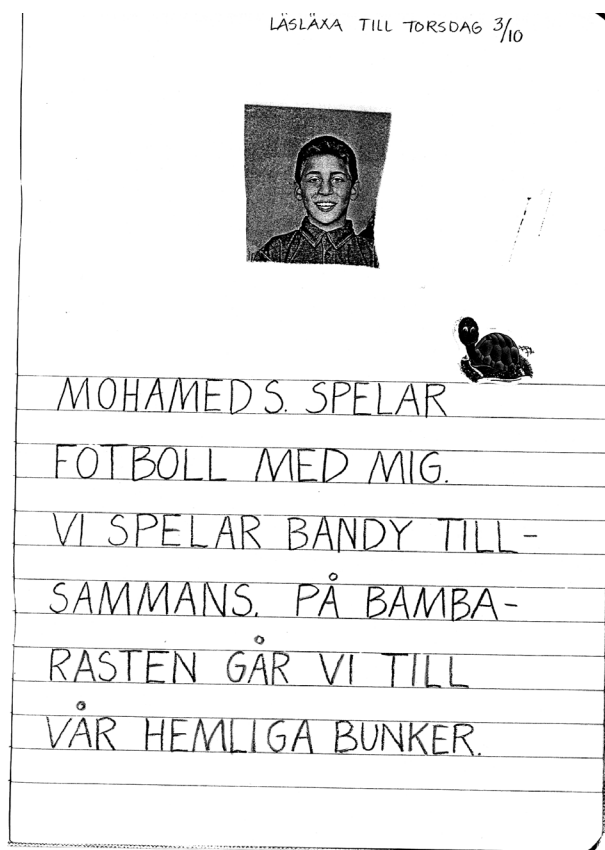 LÄSLÄXA TILL TORSDAG 3/10
MOHAMED S. SPELAR
FOTBOLL MED MIG.
VI SPELAR BANDY TILL-
SAMMANS. PÅ BAMBA-
RASTEN GÅR VI TILL
VÅR HEMLIGA BUNKER.